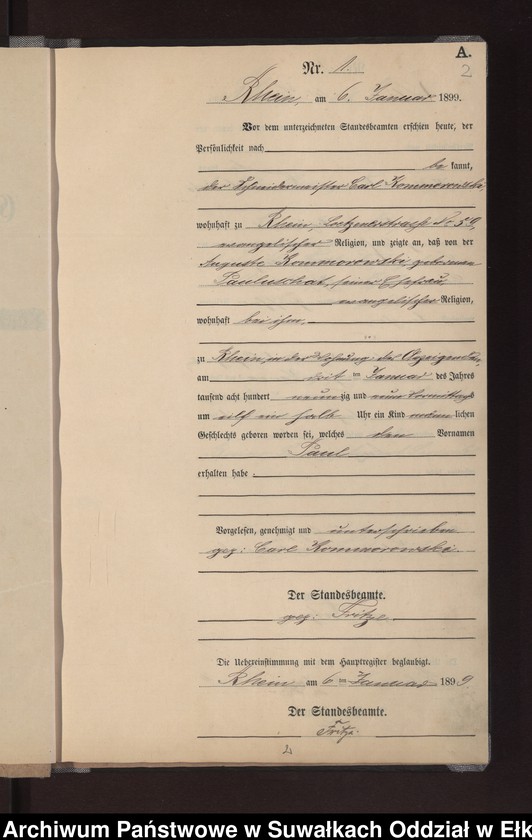 A.
2
Nr. 1.
Rhein, am 6. Januar 1899.
Vor dem unterzeichneten Standesbeamten erschien heute, der
Persönlichkeit nach
be kannt,
der Schneidermeister Carl Kommorowski,
wohnhaft zu Rhein, Lötzenerstraße No 59,
evangelischer Religion, und zeigte an, daß von der
Auguste Kommorowski geborenen
seiner Ehefrau,
evangelischer Religion,
wohnhaft bei ihm,
zu Rhein, in der Wohnung des
am Januar des Jahres
tausend acht hundert neunzig und neun Vormittags
um elf ein halb Uhr ein Kind männlichen
Geschlechts geboren worden sei, welches den Vornamen
Paul
erhalten habe.
Vorgelesen, genehmigt und unterschrieben
gez: Carl Kommorowski.
Der Standesbeamte.
gez: Fritze.
Die Uebereinstimmung mit dem Hauptregister beglaubigt.
Rhein am 6ten Januar 1899
Der Standesbeamte.
Fritze.
2
Archiwum Państwowe w Suwałkach Oddział w Ełk